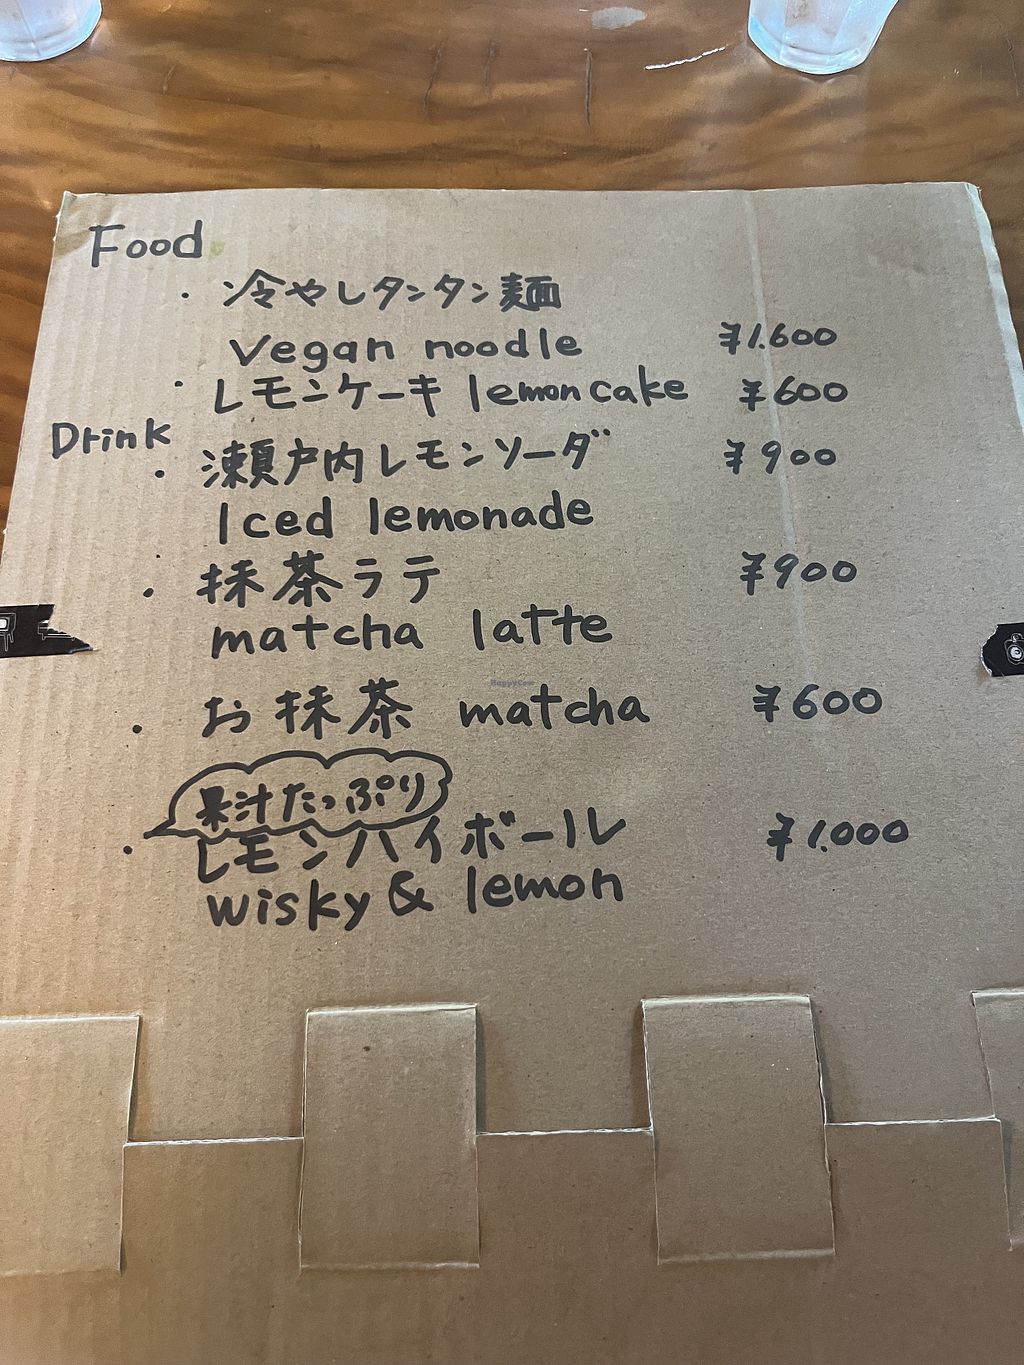 Food
・冷やしタンタン麺
Vegan noodle ¥1.600
・レモンケーキ lemon cake ¥600
Drink
・瀬戸内レモンソーダ ¥900
Iced lemonade
・抹茶ラテ ¥900
matcha latte
・お抹茶 matcha ¥600
果汁たっぷり
・レモンハイボール ¥1.000
wisky & lemon
HappyCow